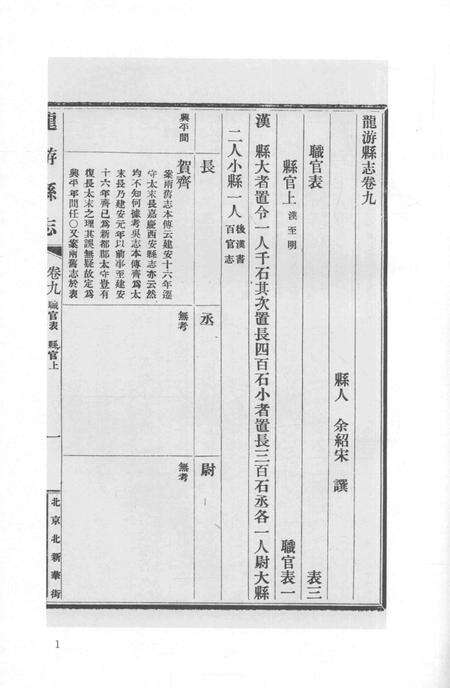 龍游縣志卷九
縣人 余紹宋 撰
職官表 表三
縣官上 漢至明 職官表一
漢 縣大者置令一人千石其次置長四百石小者置長三百石丞各一人尉大縣
二人小縣一人 後漢書百官志
長 丞 尉
興平間 賀齊 無考 無考
案兩舊志本傳云建安十六年遷
守太末長嘉慶西安縣志亦云然
均不知何據考吳志本傳齊為太
末長乃建安元年以前事至建安
十六年齊已為新都郡太守豈有
復長太末之理其誤無疑故定為
興平年間任〇又案兩舊志於表
龍游縣志 卷九 職官表 縣官上 一 北京北新華街
1